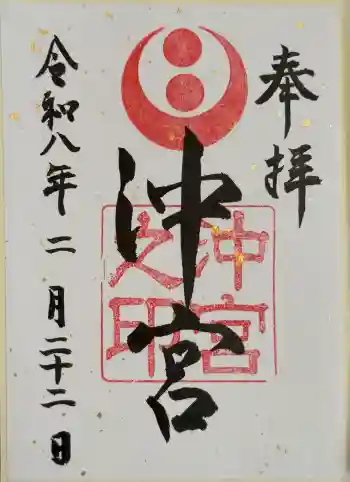 奉拝
沖宮
沖宮
之印
令和八年二月二十二日